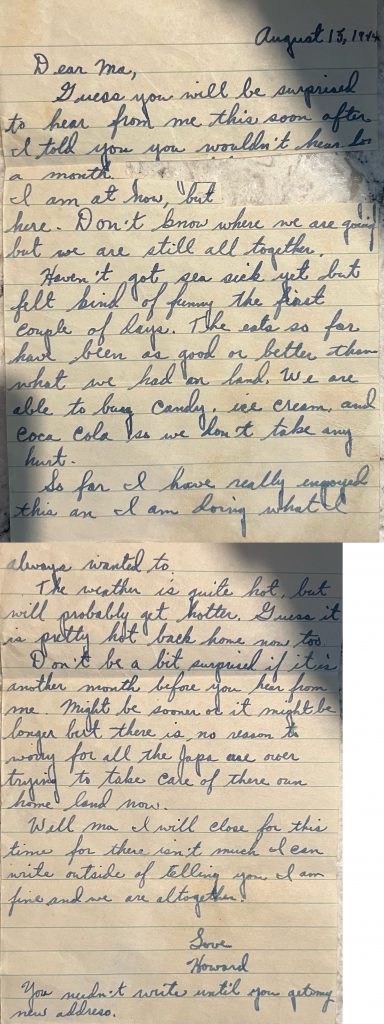 August 15, 1944
Dear Ma,
Guess you will be surprised
to hear from me this soon after
I told you you wouldn't hear for
a month.
I am at now, but
here. Don't know where we are going
but we are still all together.
Haven't got sea sick yet but
felt kind of funny the first
couple of days. The eats so far
have been as good or better than
what we had on land. We are
able to buy candy, ice cream, and
Coca Cola so we don't take any
hurt.
So far I have really engoyed
this an I am doing what I
always wanted to.
The weather is quite hot, but
will probably get hotter. Guess it
is pretty hot back home now too.
Don't be a bit surprised if it is
another month before you hear from
me. Might be sooner or it might be
longer but there is no reason to
worry for all the Japs are over
trying to take care of there own
home land now.
Well ma I will close for this
time for there isn't much I can
write outside of telling you I am
fine and we are altogether.
Love
Howard
You needn't write until you get my
new address.